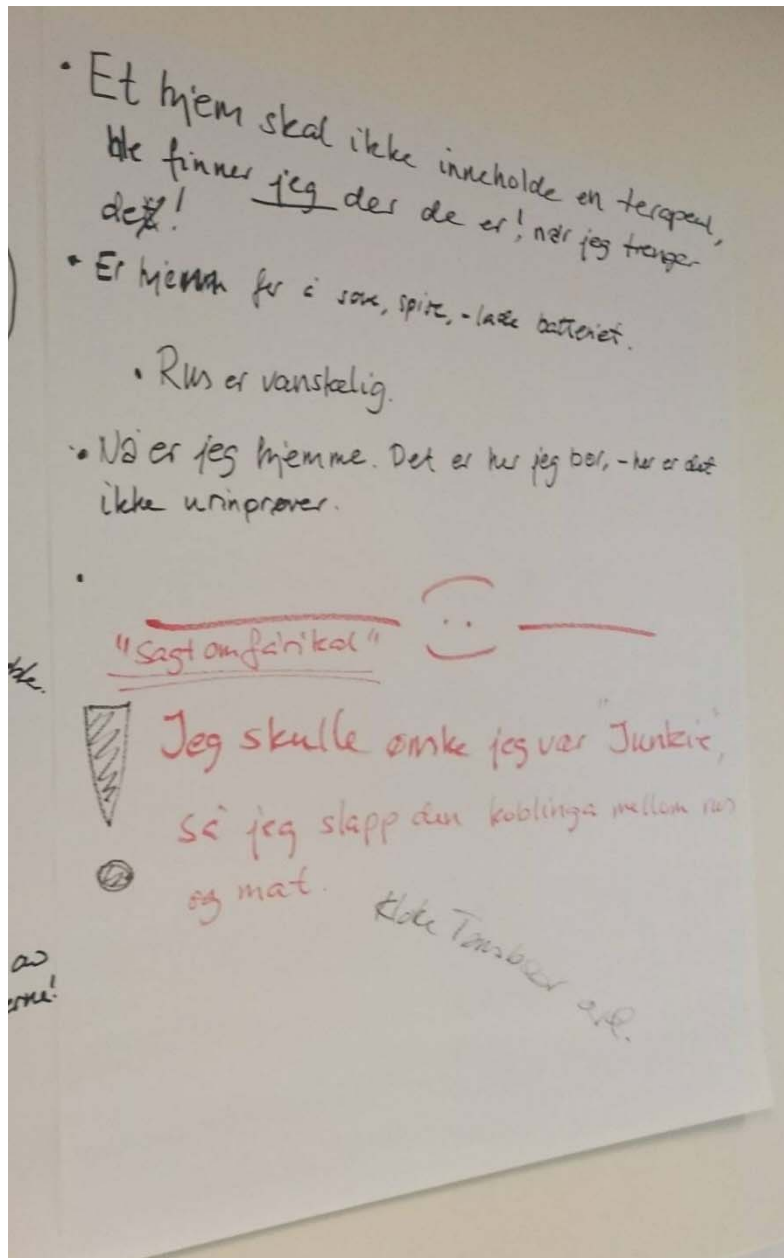 • Et hjem skal ikke inneholde en terapeut,
finner jeg der de er! når jeg trenger
det!
• Et hjem for å sove, spise, - lade batteriet.
• Rus er vanskelig.
• Nå er jeg hjemme. Det er her jeg bor, - her er det
ikke urinprøver.
•
"Sagt om fårikål"
Jeg skulle ønske jeg var "Junkie",
så jeg slapp den koblinga mellom rus
og mat.
Kloke